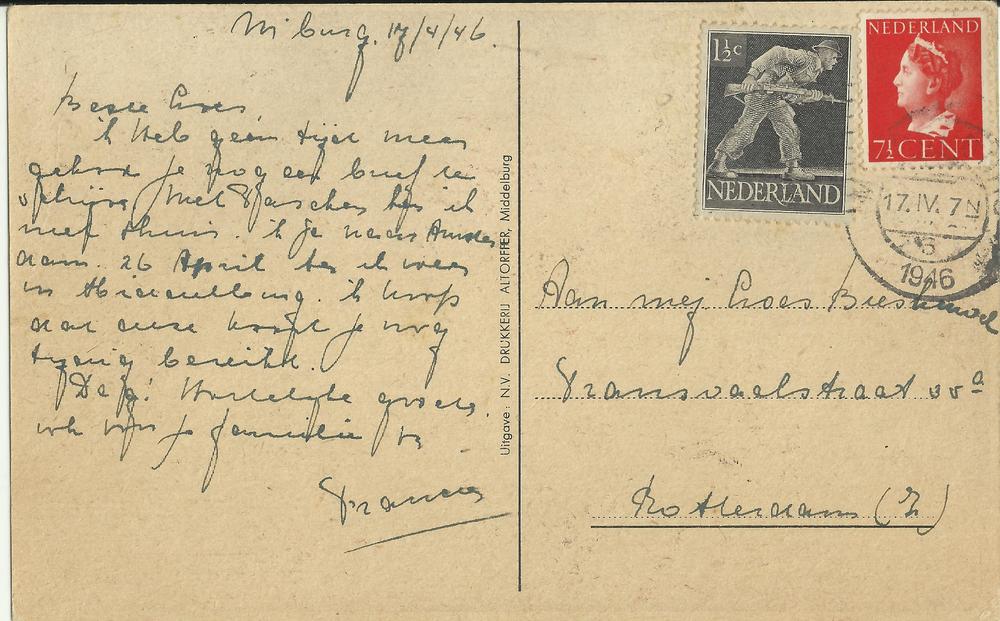 M'burg. 17/4/46.
Beste Loes,
ik heb geen tijd meer
gehad je nog een brief te
schrijven. Met Paschen ben ik
niet thuis. Ik ga naar Amster
dam. 26 April ben ik weer
in Middelburg. Ik hoop
dat deze kaart je nog
tijdig bereikt.
Dag! Hartelijke groeten
ook voor je familie
Uitgave: N.V. DRUKKERIJ ALTORFFER, Middelburg
1½c
NEDERLAND
NEDERLAND
7½ CENT
17.IV. 7N
1946
Aan mej Loes
Transvaalstraat 55a
Rotterdam (Z)